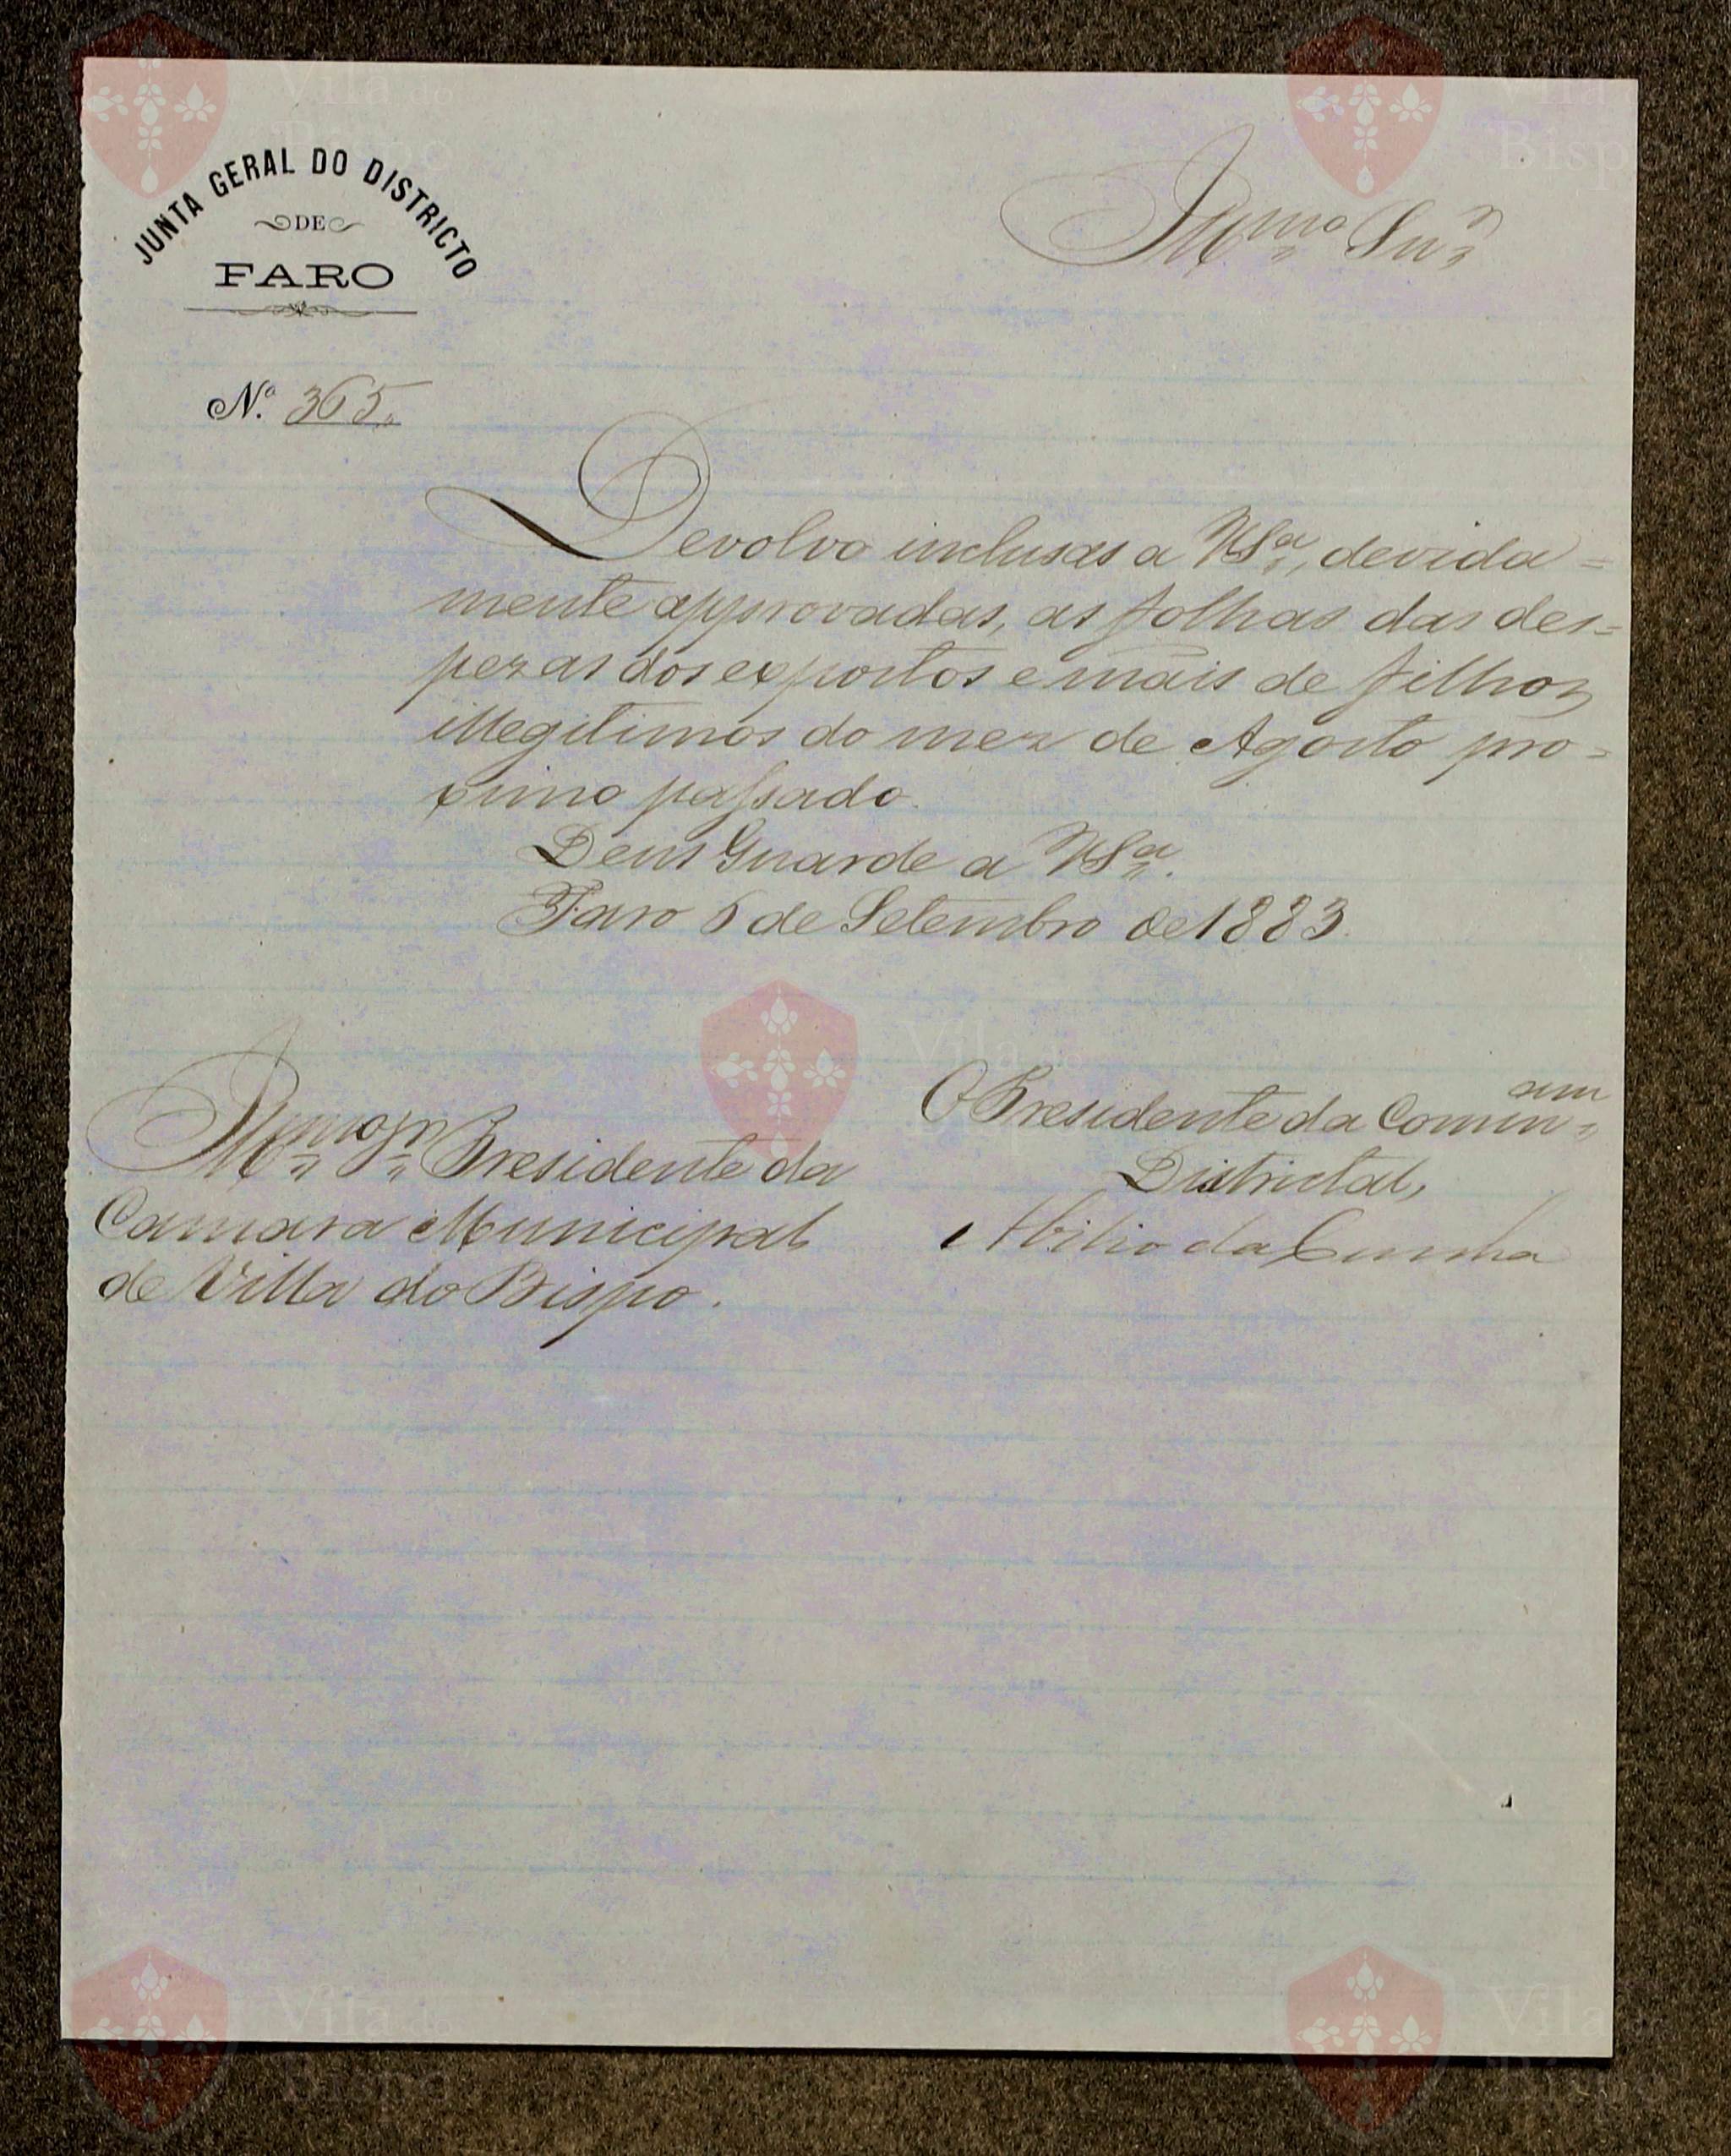 JUNTA GERAL DO DISTRICTO
DE
FARO
Illmo Snr
N.º 365
Devolvo inclusas a VSa, devida=
mente approvadas, as folhas das des=
pezas dos expostos e mães de filhos
illegitimos do mez de Agosto pro=
ximo passado.
Deus Guarde a VSa.
Faro 6 de Setembro de 1883.
O Presidente da Commam
Districtal,
Abilio da Cunha
Illmo Sr Presidente da
Camara Municipal
de Villa do Bispo.
Vila do
Bispo